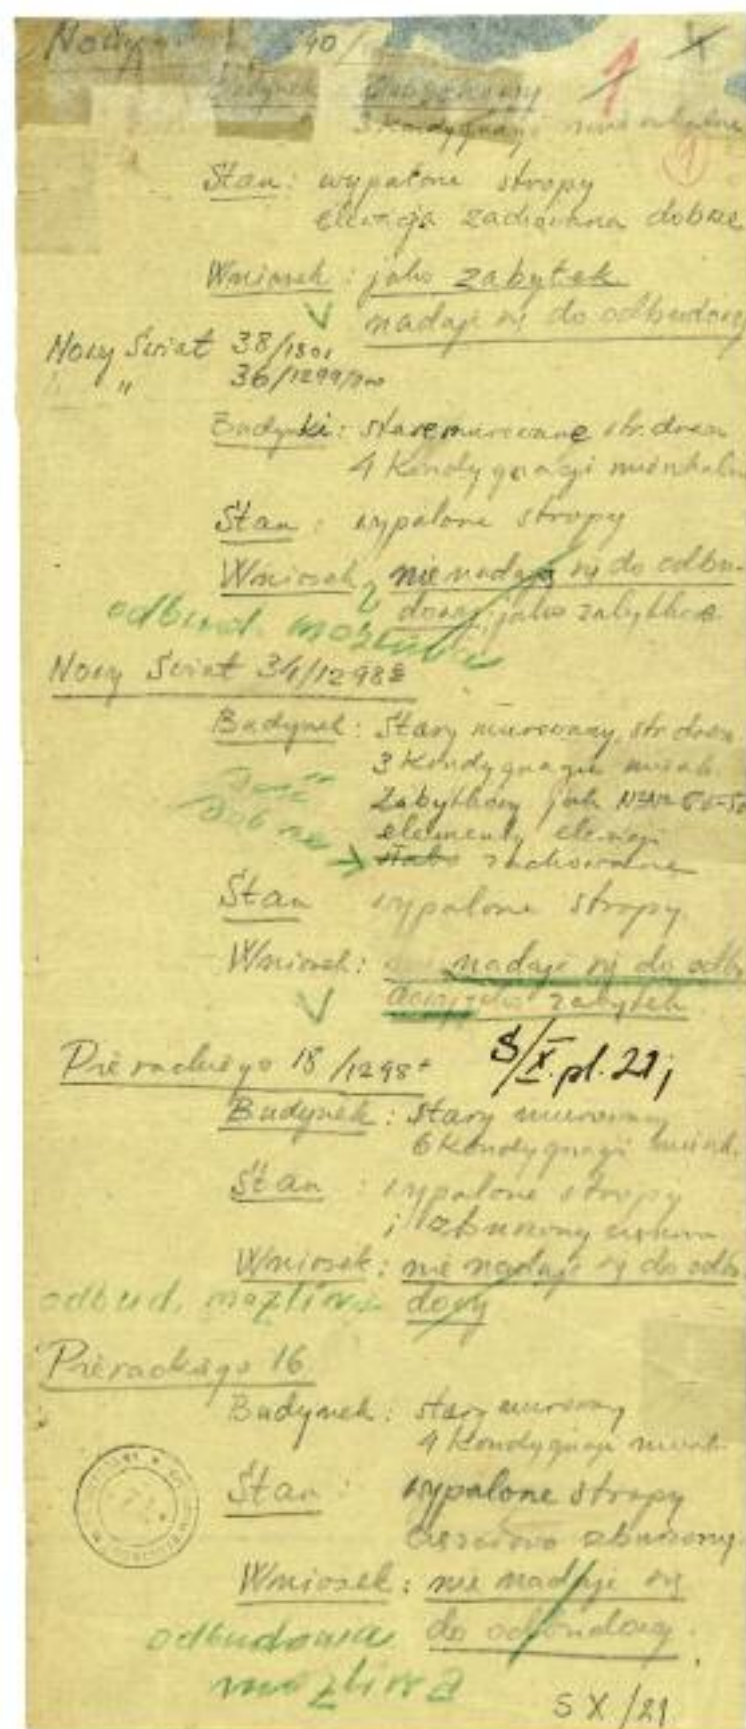 Nowy 40/
Budynek
3 kondygnacji
1
Stan: wypalone stropy
elewacja zachowana dobrze
Wniosek: jako zabytek
nadaje się do odbudowy
Nowy Świat 38/1301
" 36/1299/300
Budynki: stare murowane str. drewn
4 kondygnacji mieszkaln
Stan: wypalone stropy
Wniosek nie nadają się do odbu-
dowy jako zabytkowe
odbud. możliwa
Nowy Świat 34/1298
Budynek: Stary murowany, str drewn.
3 kondygnacji mieszk.
Zabytkowy jak
dość
dobrze
elementy elewacji
słabo zachowane
Stan wypalone stropy
Wniosek: nadaje się do odbu
dowy jako zabytek.
Pierackiego 18/1298
S/X. pl. 21;
Budynek: stary murowany
6 kondygnacji mieszk.
Stan: wypalone stropy
i zburzony
Wniosek: nie nadaje się do odbu
dowy
odbud. możliwa
Pierackiego 16
Budynek: stary murowany
4 kondygnacji mieszk.
Stan: wypalone stropy
częściowo zburzony
Wniosek: nie nadaje się
do odbudowy.
odbudowa
możliwa
S X /21